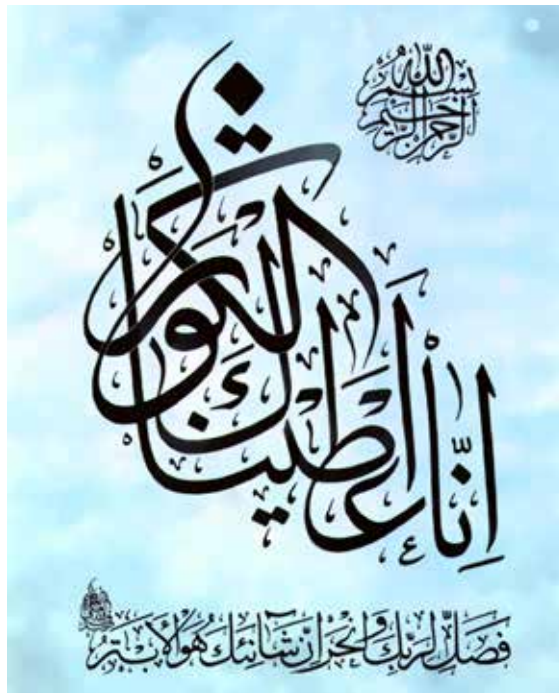 بسم الله الرحمن الرحيم
انا اعطيناك الكوثر
فصل لربك وانحر ان شانئك هو الأبتر